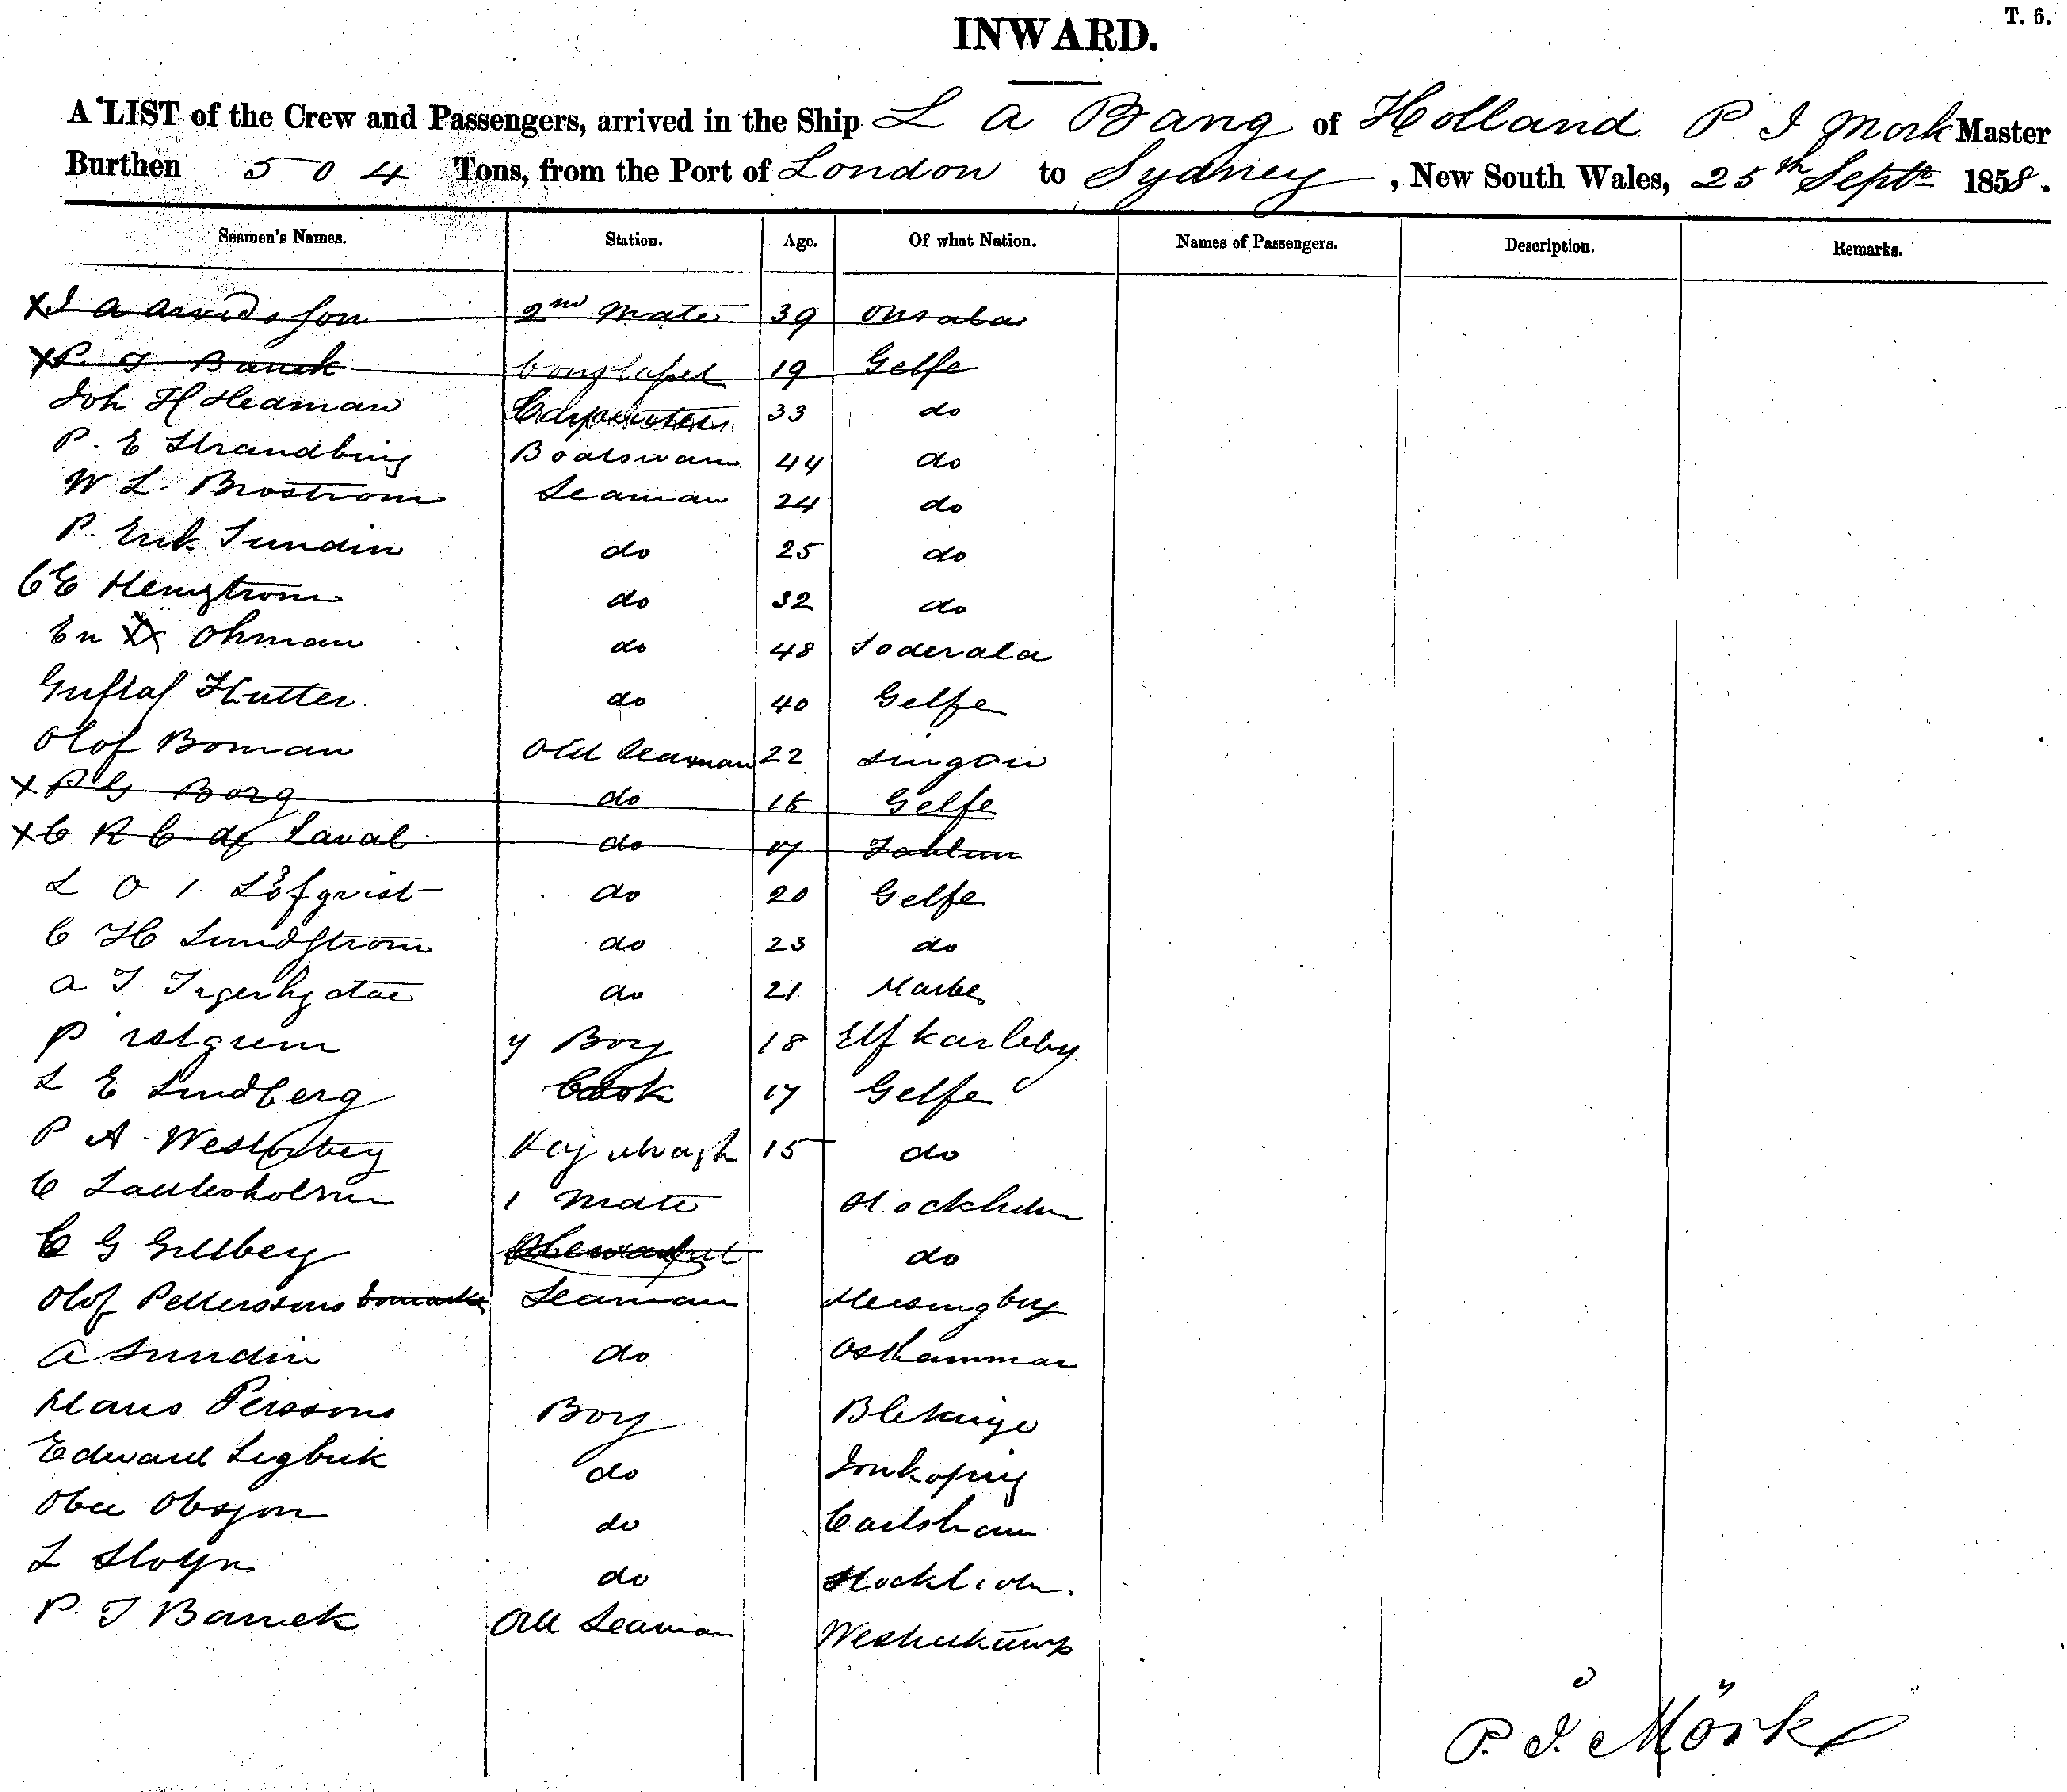 T. 6.
INWARD.
A LIST of the Crew and Passengers, arrived in the Ship L a Bang of Holland P I Mork Master
Burthen 504 Tons, from the Port of London to Sydney, New South Wales, 25th Septr 1858.
Seamen's Names. Station. Age. Of what Nation. Names of Passengers. Description. Remarks.
X I a Arvidsson 2nd Mate 39 Onsala
X P. T Banck 19 Gelfe
Joh H Hedman Carpenter 33 do
P. E Strandbing Boatswain 44 do
W L Brostrom Seaman 24 do
P. Erik Sundin do 25 do
C E Hemgstrom do 32 do
En Ohman do 48 Soderala
Gustaf Hutter do 40 Gelfe
Olof Boman Old Seaman 22
X P G Borg do 18 Gelfe
X C R C af Laval do 17 Fahlun
L O I Löfqvist do 20 Gelfe
C H Lundstrom do 23 do
a T do 21
P y Boy 18 Elfkarleby
L E Lindberg Cook 17 Gelfe
P A Westerbey 15 do
C 1 Mate Stockholm
C G Gillbey do
Olof Pettersson Seaman
A Sundin do Osthammar
Hans Persson Boy Blekinge
Edward do Jonkoping
do Carlsham
L do Stockholm.
P. T Banck Old Seaman
P. I. Mörk